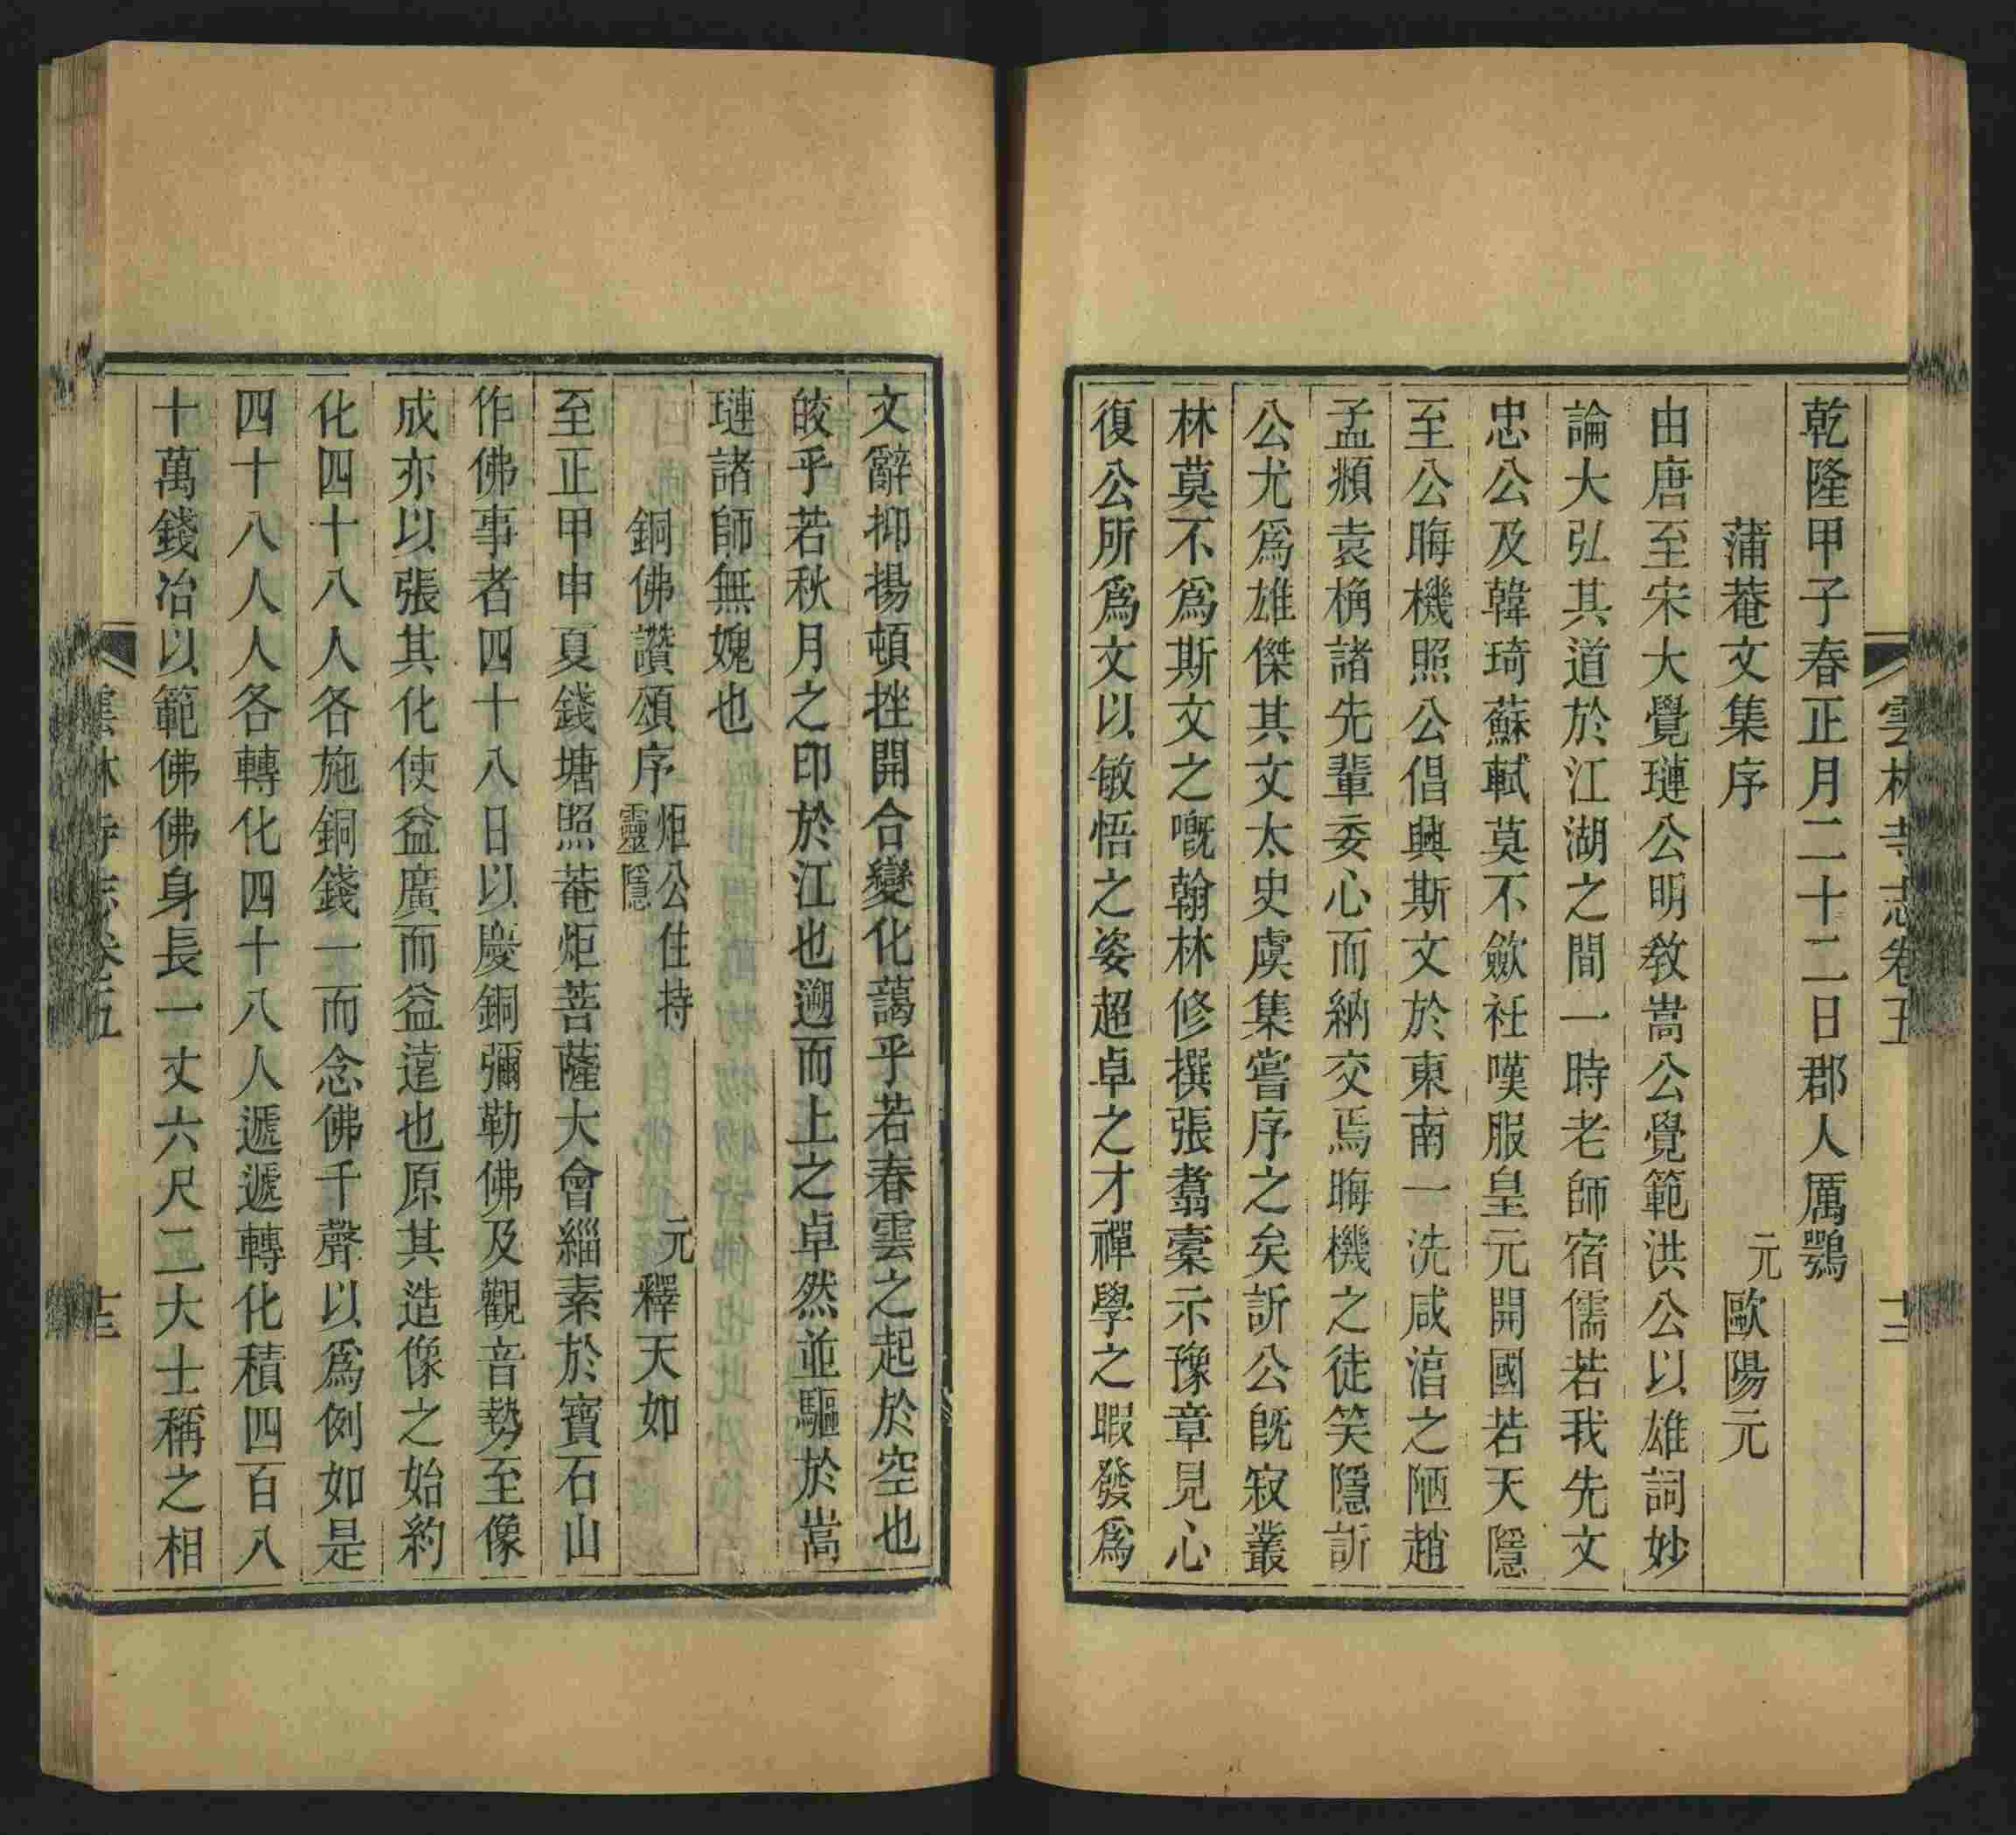 雲林寺志卷五
十二
乾隆甲子春正月二十二日郡人厲鶚
蒲菴文集序
元歐陽元
由唐至宋大覺璉公明敎嵩公覺範洪公以雄詞妙
論大弘其道於江湖之間一時老師宿儒若我先文
忠公及韓琦蘇軾莫不歛衽嘆服皇元開國若天隱
至公晦機照公倡興斯文於東南一洗咸淳之陋趙
孟頫袁桷諸先輩委心而納交焉晦機之徒笑隱訢
公尤爲雄傑其文太史虞集嘗序之矣訢公旣寂叢
林莫不爲斯文之嘅翰林修撰張翥稾示豫章見心
復公所爲文以敏悟之姿超卓之才禪學之暇發爲
文辭抑揚頓挫開合變化藹乎若春雲之起於空也
皎乎若秋月之印於江也遡而上之卓然並驅於嵩
璉諸師無媿也
銅佛讚頌序
炬公住持
靈隱
元釋天如
至正甲申夏錢塘照菴炬菩薩大會緇素於寶石山
作佛事者四十八日以慶銅彌勒佛及觀音勢至像
成亦以張其化使益廣而益遠也原其造像之始約
化四十八人各施銅錢一而念佛千聲以爲例如是
四十八人人各轉化四十八人遞遞轉化積四百八
十萬錢冶以範佛佛身長一丈六尺二大士稱之相
雲林寺志卷五
十三